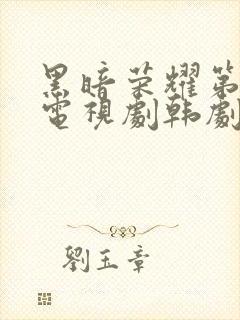 黑暗荣耀第
電視劇韩劇
劉玉章